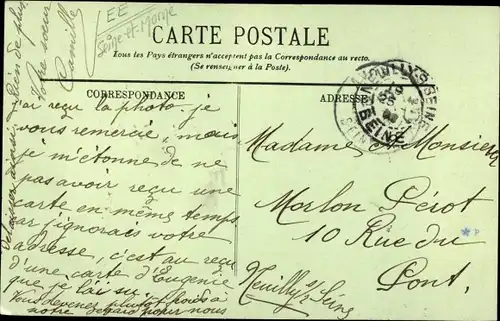 EE
Seine-et-Marne
CARTE POSTALE
Tous les Pays étrangers n'acceptent pas la Correspondance au recto.
(Se renseigner à la Poste).
CORRESPONDANCE
ADRESSE
j'ai reçu la photo je
vous remercie, mais
je m'étonne de ne
pas avoir reçu une
carte en même temps
car j'ignorais votre
adresse, c'est au reçu
d'une carte d'Eugenie
que je l'ai su.
Vous devenez plutôt froids à
notre égard pour nous
bien de plus
Votre sœur
Camille
Madame et Monsieur
Morlon Pérot
10 Rue du
Pont.
Neuilly s/ Seine
NEUILLY-S-SEINE
SEINE